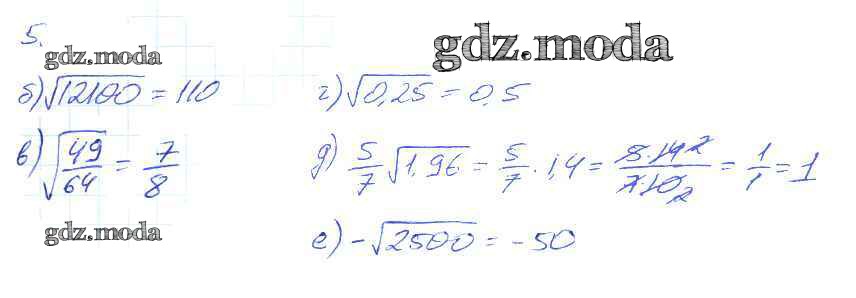 5.
gdz.moda
gdz.moda
б) √12100 = 110
г) √0,25 = 0,5
в) √49/64 = 7/8
д) 5/7 √1,96 = 5/7 · 1,4 = 5·14 2/7·10 2 = 1/1 = 1
gdz.moda
е) -√2500 = -50